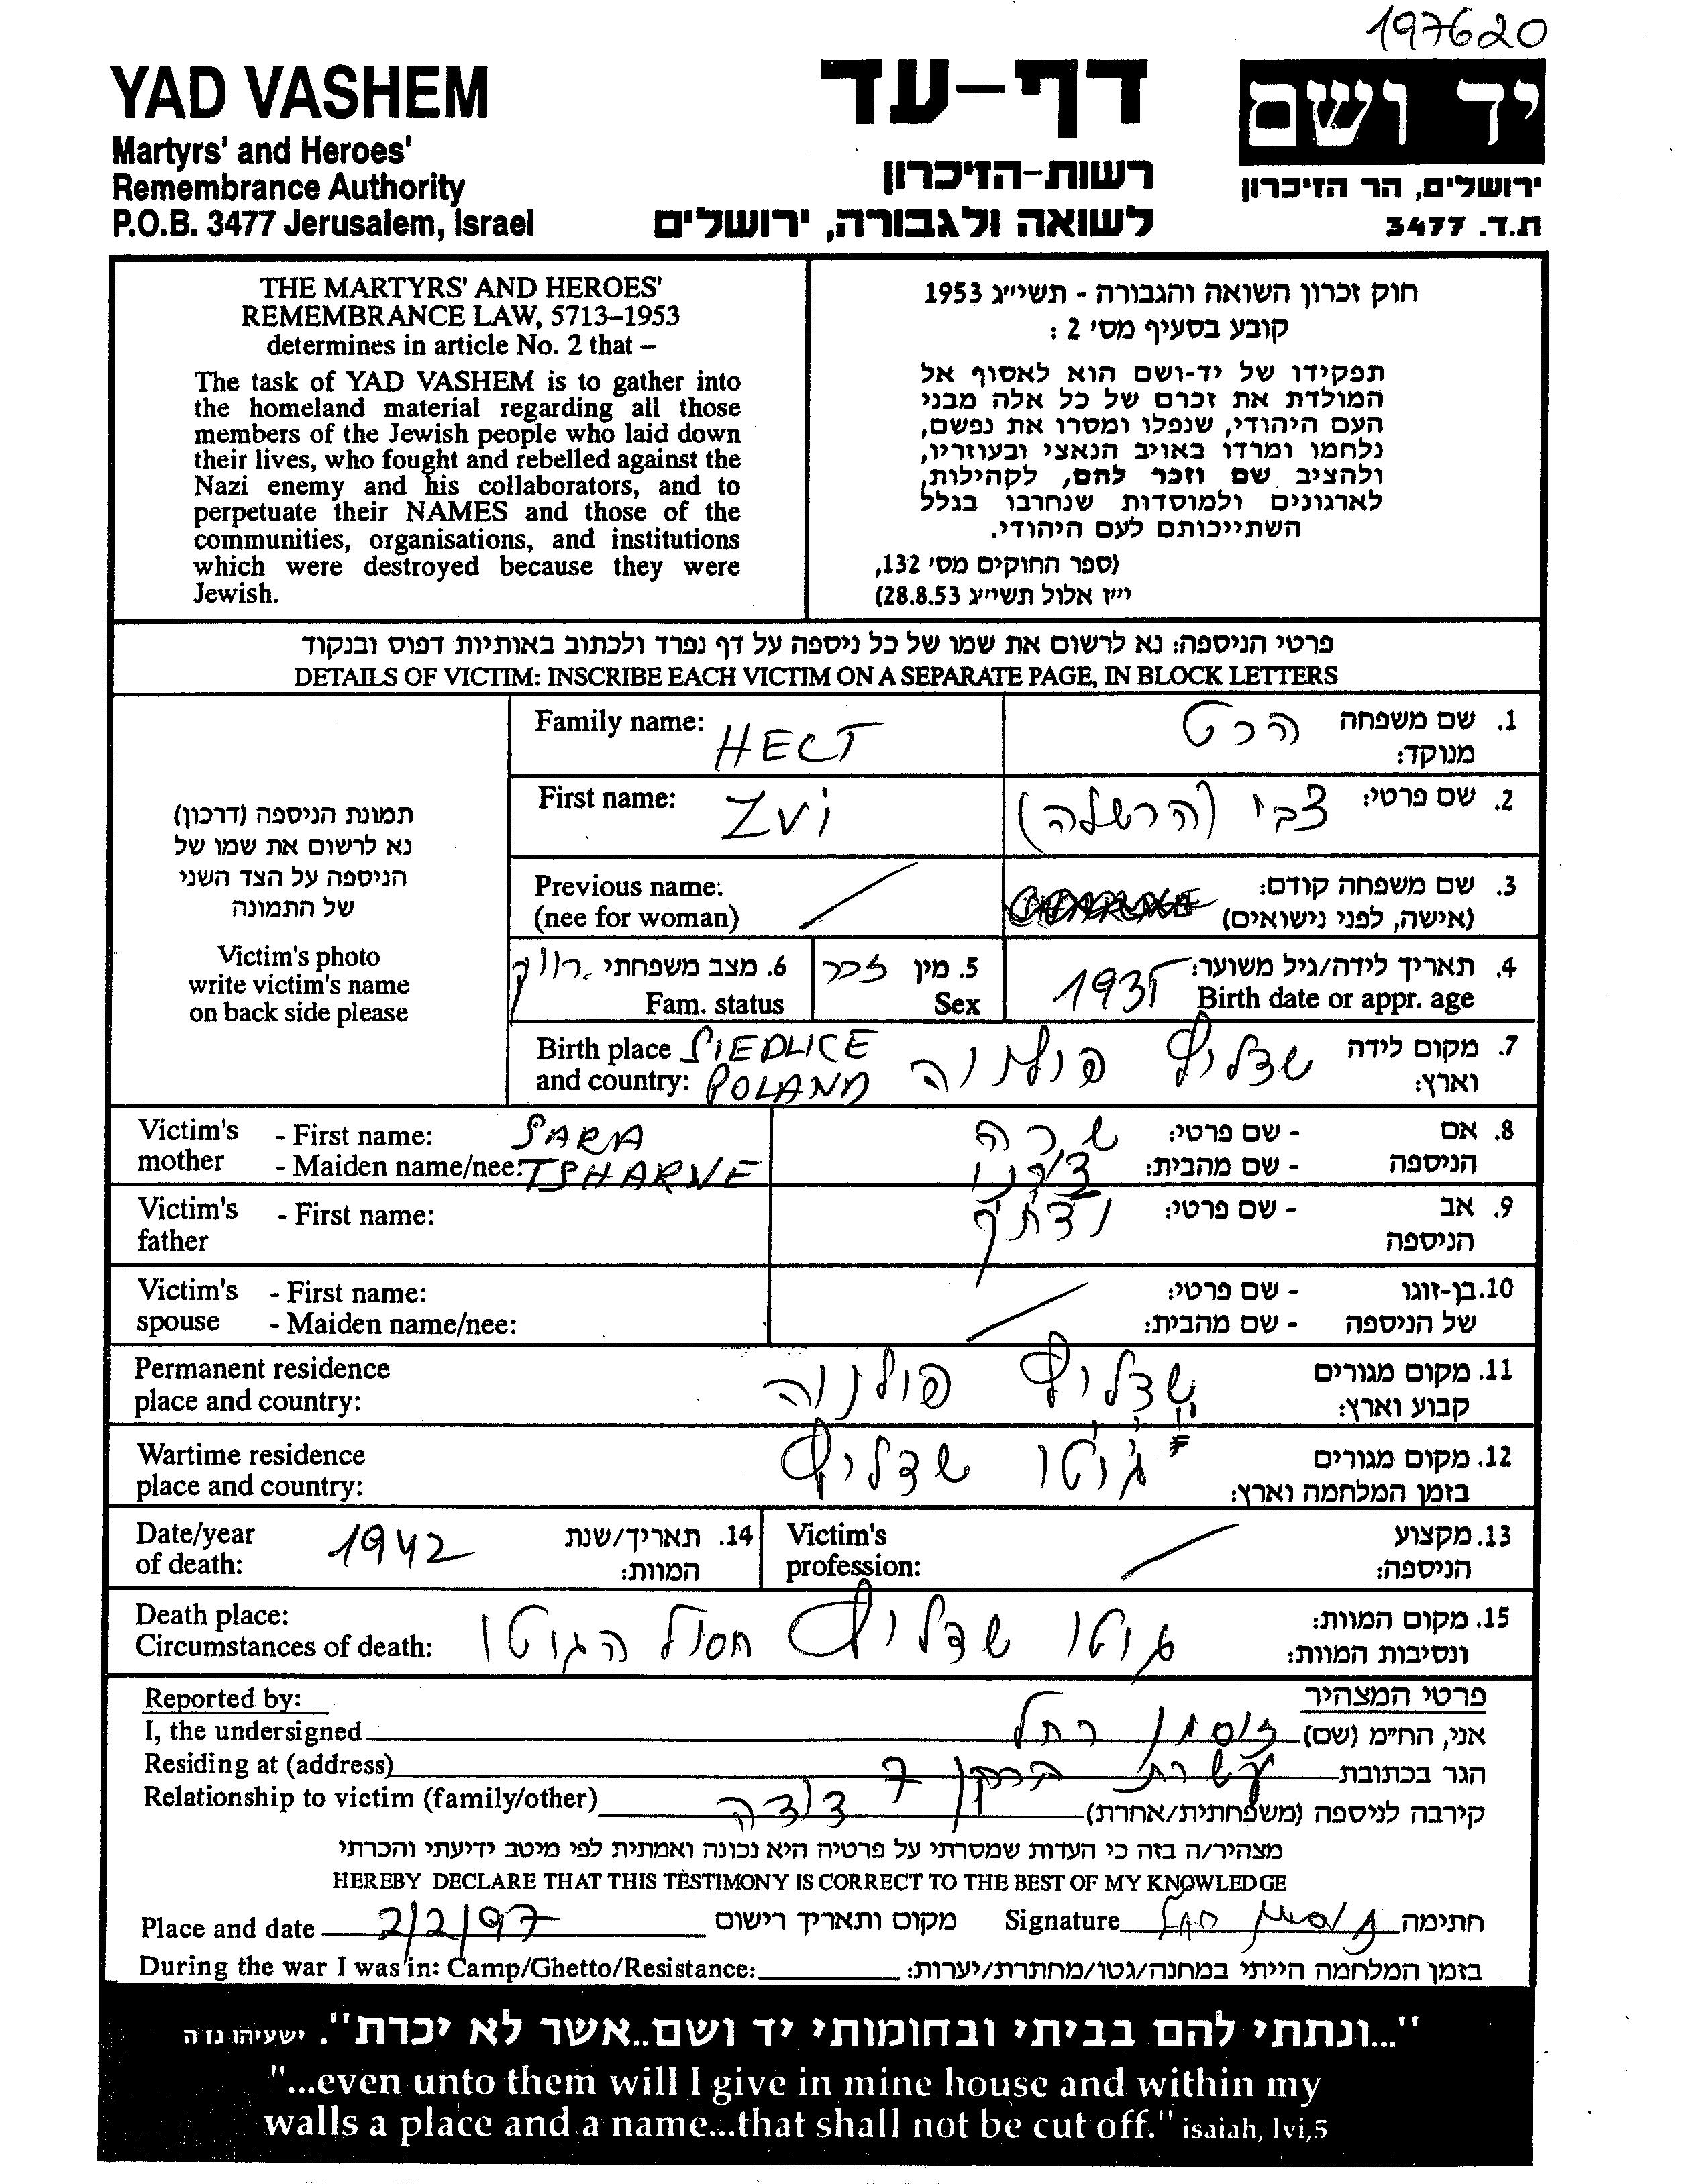 197620
YAD VASHEM
Martyrs' and Heroes'
Remembrance Authority
P.O.B. 3477 Jerusalem, Israel
דף-עד
רשות-הזיכרון
לשואה ולגבורה, ירושלים
יד ושם
ירושלים, הר הזיכרון
ת.ד. 3477
THE MARTYRS' AND HEROES'
REMEMBRANCE LAW, 5713–1953
determines in article No. 2 that –
The task of YAD VASHEM is to gather into
the homeland material regarding all those
members of the Jewish people who laid down
their lives, who fought and rebelled against the
Nazi enemy and his collaborators, and to
perpetuate their NAMES and those of the
communities, organisations, and institutions
which were destroyed because they were
Jewish.
חוק זכרון השואה והגבורה - תשי״ג 1953
קובע בסעיף מס׳ 2 :
תפקידו של יד-ושם הוא לאסוף אל
המולדת את זכרם של כל אלה מבני
העם היהודי, שנפלו ומסרו את נפשם,
נלחמו ומרדו באויב הנאצי ובעוזריו,
ולהציב שם וזכר להם, לקהילות,
לארגונים ולמוסדות שנחרבו בגלל
השתייכותם לעם היהודי.
(ספר החוקים מס׳ 132,
י״ז אלול תשי״ג 28.8.53)
פרטי הניספה: נא לרשום את שמו של כל ניספה על דף נפרד ולכתוב באותיות דפוס ובנקוד
DETAILS OF VICTIM: INSCRIBE EACH VICTIM ON A SEPARATE PAGE, IN BLOCK LETTERS
תמונת הניספה (דרכון)
נא לרשום את שמו של
הניספה על הצד השני
של התמונה
Victim's photo
write victim's name
on back side please
Family name: HECT
1. שם משפחה הכט
מנוקד:
First name: Zvi
2. שם פרטי: צבי (הרשלה)
Previous name:
(nee for woman)
3. שם משפחה קודם:
(אישה, לפני נישואים)
4. תאריך לידה/גיל משוער:
Birth date or appr. age 1935
5. מין זכר
Sex
6. מצב משפחתי רווק
Fam. status
Birth place SIEDLICE
and country: POLAND
7. מקום לידה שדליץ פולניה
וארץ:
Victim's mother - First name: SARA
- Maiden name/nee: TSHARNE
8. אם הניספה - שם פרטי: שרה
- שם מהבית:
Victim's father - First name:
9. אב הניספה - שם פרטי:
Victim's spouse - First name:
- Maiden name/nee:
10. בן-זוגו של הניספה - שם פרטי:
- שם מהבית:
Permanent residence
place and country:
11. מקום מגורים שדליץ פולניה
קבוע וארץ:
Wartime residence
place and country:
12. מקום מגורים גיטו שדליץ
בזמן המלחמה וארץ:
Date/year
of death: 1942
14. תאריך/שנת
המוות:
Victim's
profession:
13. מקצוע
הניספה:
Death place:
Circumstances of death:
15. מקום המוות: גיטו שדליץ חסול הגיטו
ונסיבות המוות:
Reported by:
פרטי המצהיר
I, the undersigned
אני, הח״מ (שם) זוסמן רחל
Residing at (address)
הגר בכתובת ברקן 7
Relationship to victim (family/other)
קירבה לניספה (משפחתית/אחרת) דודה
מצהיר/ה בזה כי העדות שמסרתי על פרטיה היא נכונה ואמתית לפי מיטב ידיעתי והכרתי
HEREBY DECLARE THAT THIS TESTIMONY IS CORRECT TO THE BEST OF MY KNOWLEDGE
Place and date 2/2/97 מקום ותאריך רישום Signature חתימה
During the war I was in: Camp/Ghetto/Resistance: בזמן המלחמה הייתי במחנה/גטו/מחתרת/יערות:
"...ונתתי להם בביתי ובחומותי יד ושם..אשר לא יכרת". ישעיהו נו ה
"...even unto them will I give in mine house and within my
walls a place and a name...that shall not be cut off." isaiah, lvi,5